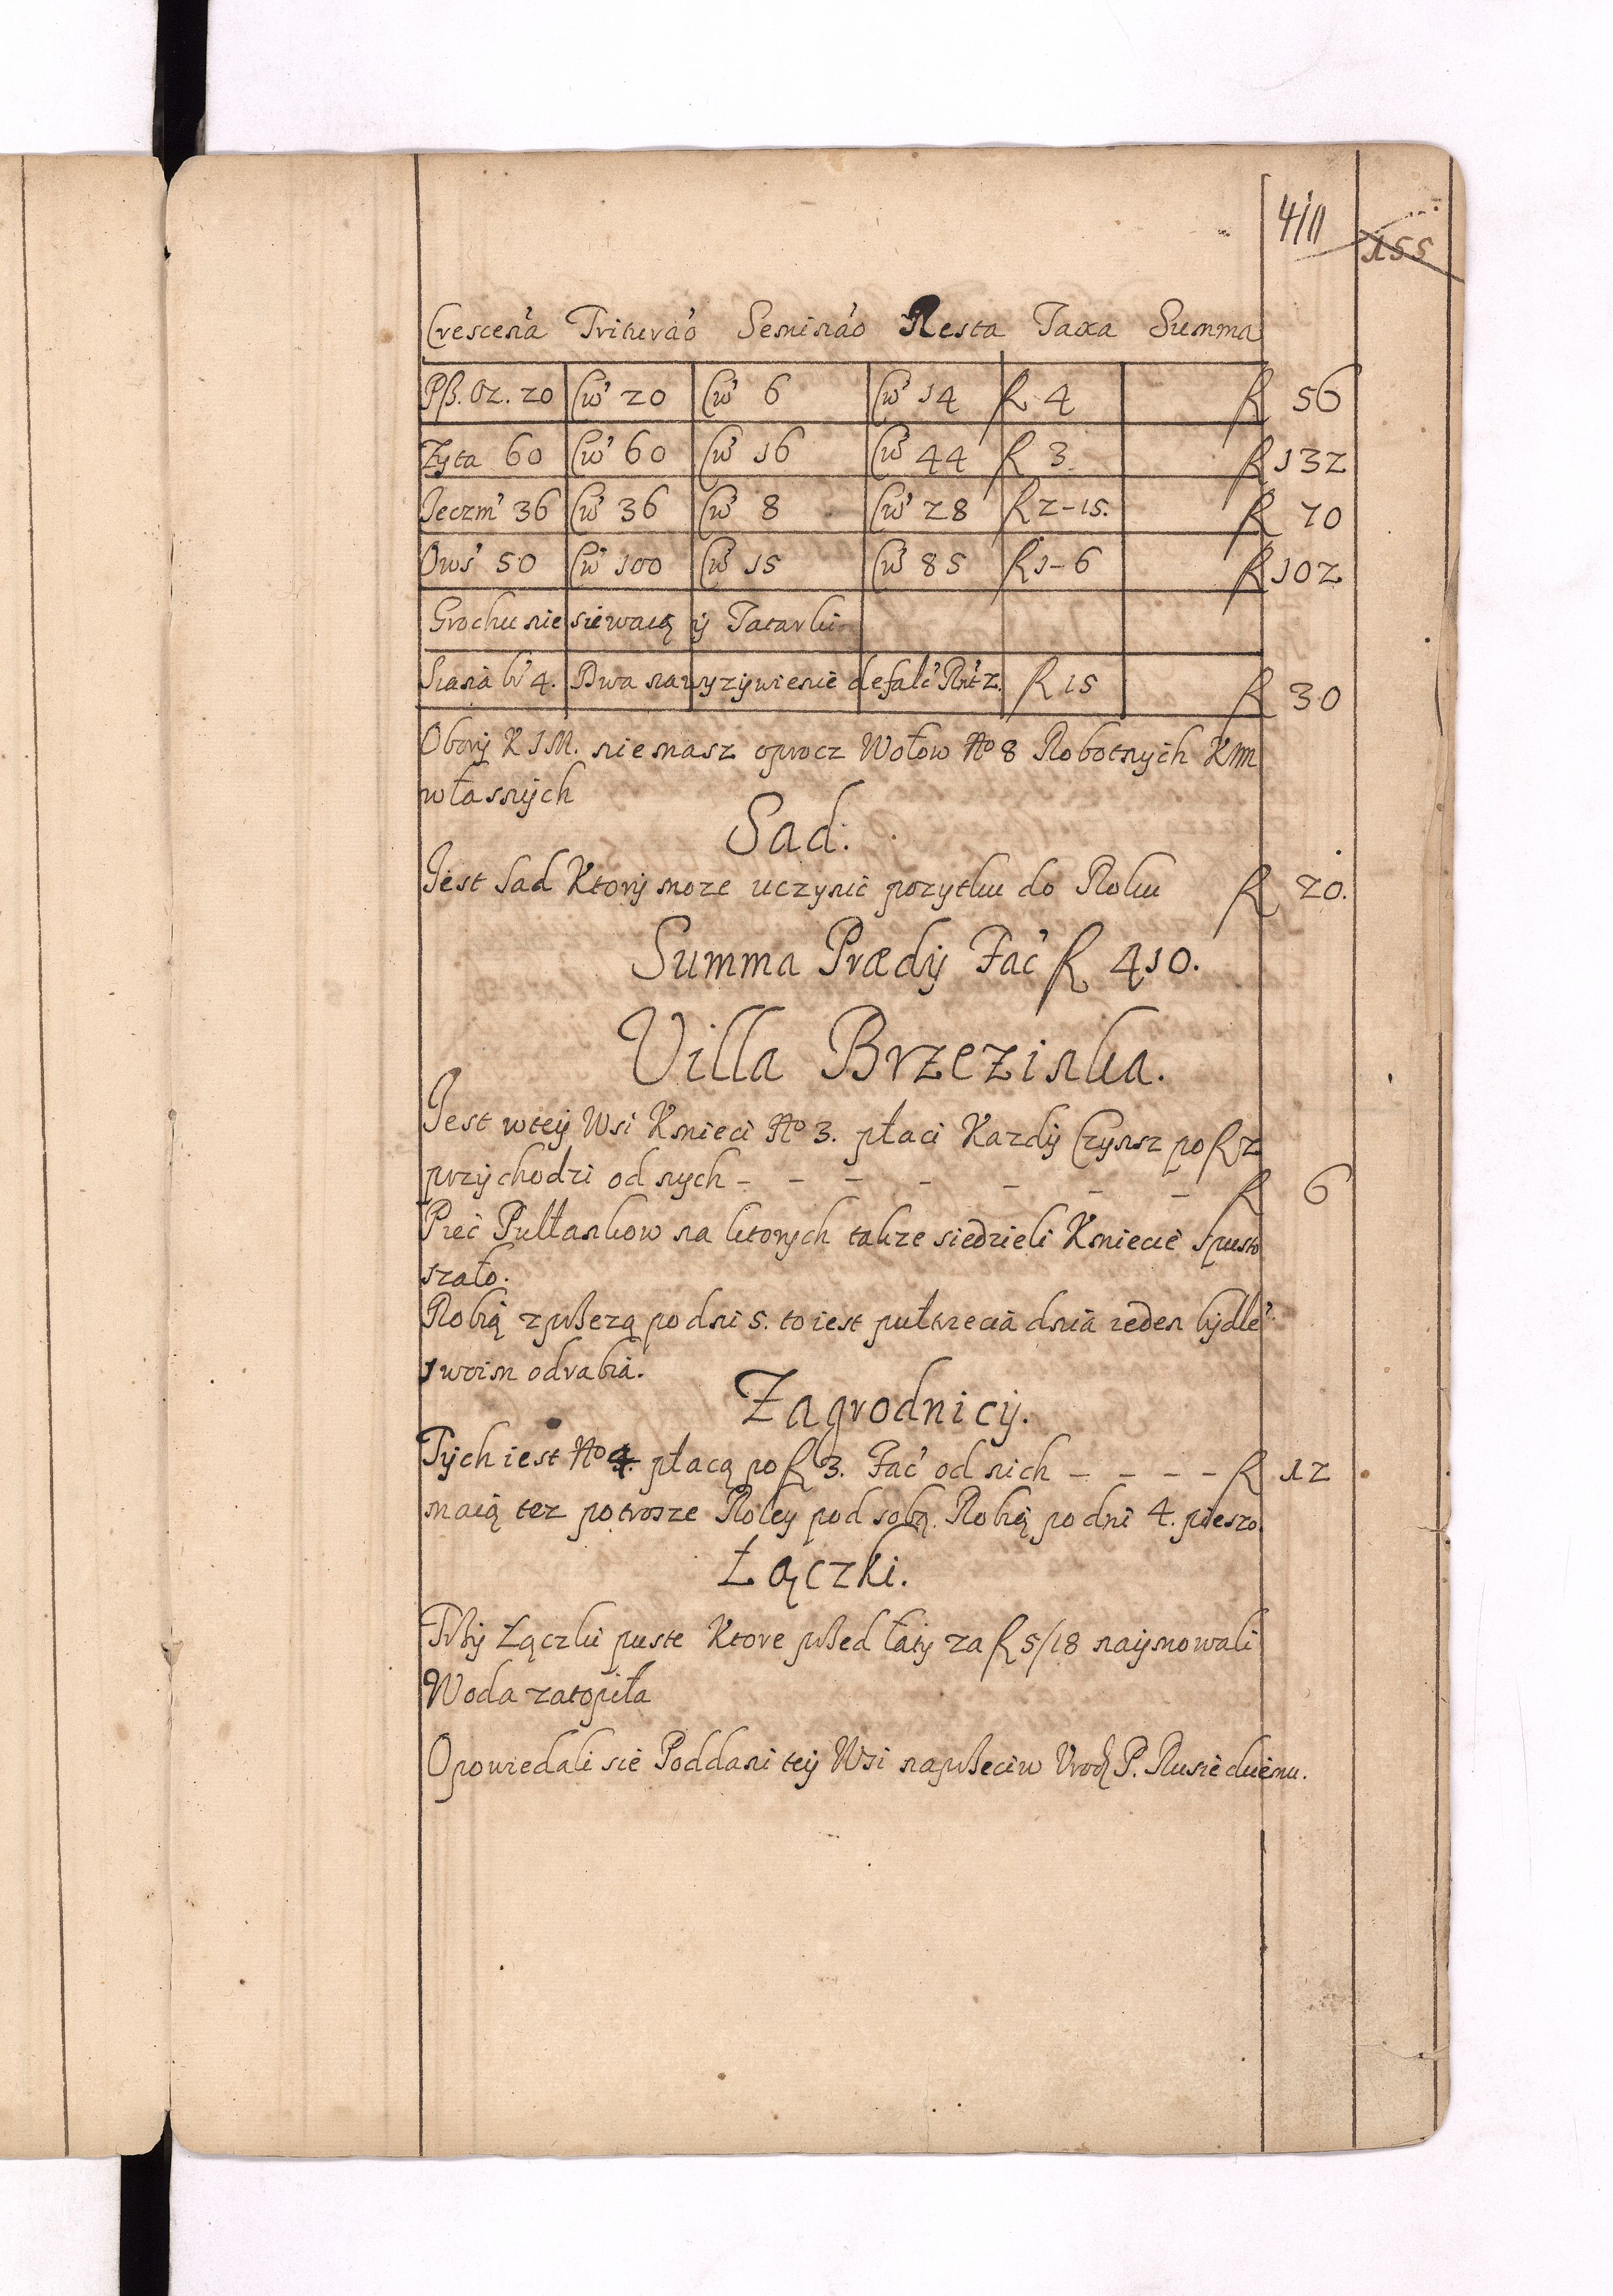 411
155
Crescen'a Triturao' Seminao' Resta Taxa Summa
Pß. Oz. 20 Cw' 20 Cw' 6 Cw' 14 fl 4 fl 56
Zyta 60 Cw' 60 Cw' 16 Cw' 44 fl 3 fl 132
Jeczm' 36 Cw' 36 Cw' 8 Cw' 28 fl 2-15. fl 70
Ows' 50 Cw' 100 Cw' 15 Cw' 85 fl 1-6 fl 102
Grochu nie siewaią ij Tatarki
Siana 4. Dwa na wyzijwienie defalc' 2. fl 15 fl 30
Oborij K J M. niemasz oprocz Wołow No 8 Robotnych KJM
własnijch
Sad.
Jest Sad Ktorij moze uczynić pozytku do Roku fl 20.
Summa Prædij Fac' fl 410.
Villa Brzezinka.
Jest wteij Wsi Kmieci No 3. płaci Kazdij Czynsz po fl 2
przijchodzi od nych - - - - - - - fl 6
Pieć Pułłankow na ktorych takze siedzieli Kmiecie spusto
szało.
Robią zpßezą po dni 5. to iest pułtrzecia dnia ieden bijdłe'
swoim odrabia.
Zagrodnicij.
Tijch iest No 4. płacą po fl 3. Fac' od nich - - - - fl 12
maią tez potrosze Roley pod sobą. Robią po dni 4. pieszo.
Łączki.
Tßij Łączki puste Ktore pßed łatij za fl 5/18 naijmowali
Woda zatopiła
Opowiedali sie Poddani teij Wsi napßeciw Urodz P. Rusieckiemu.